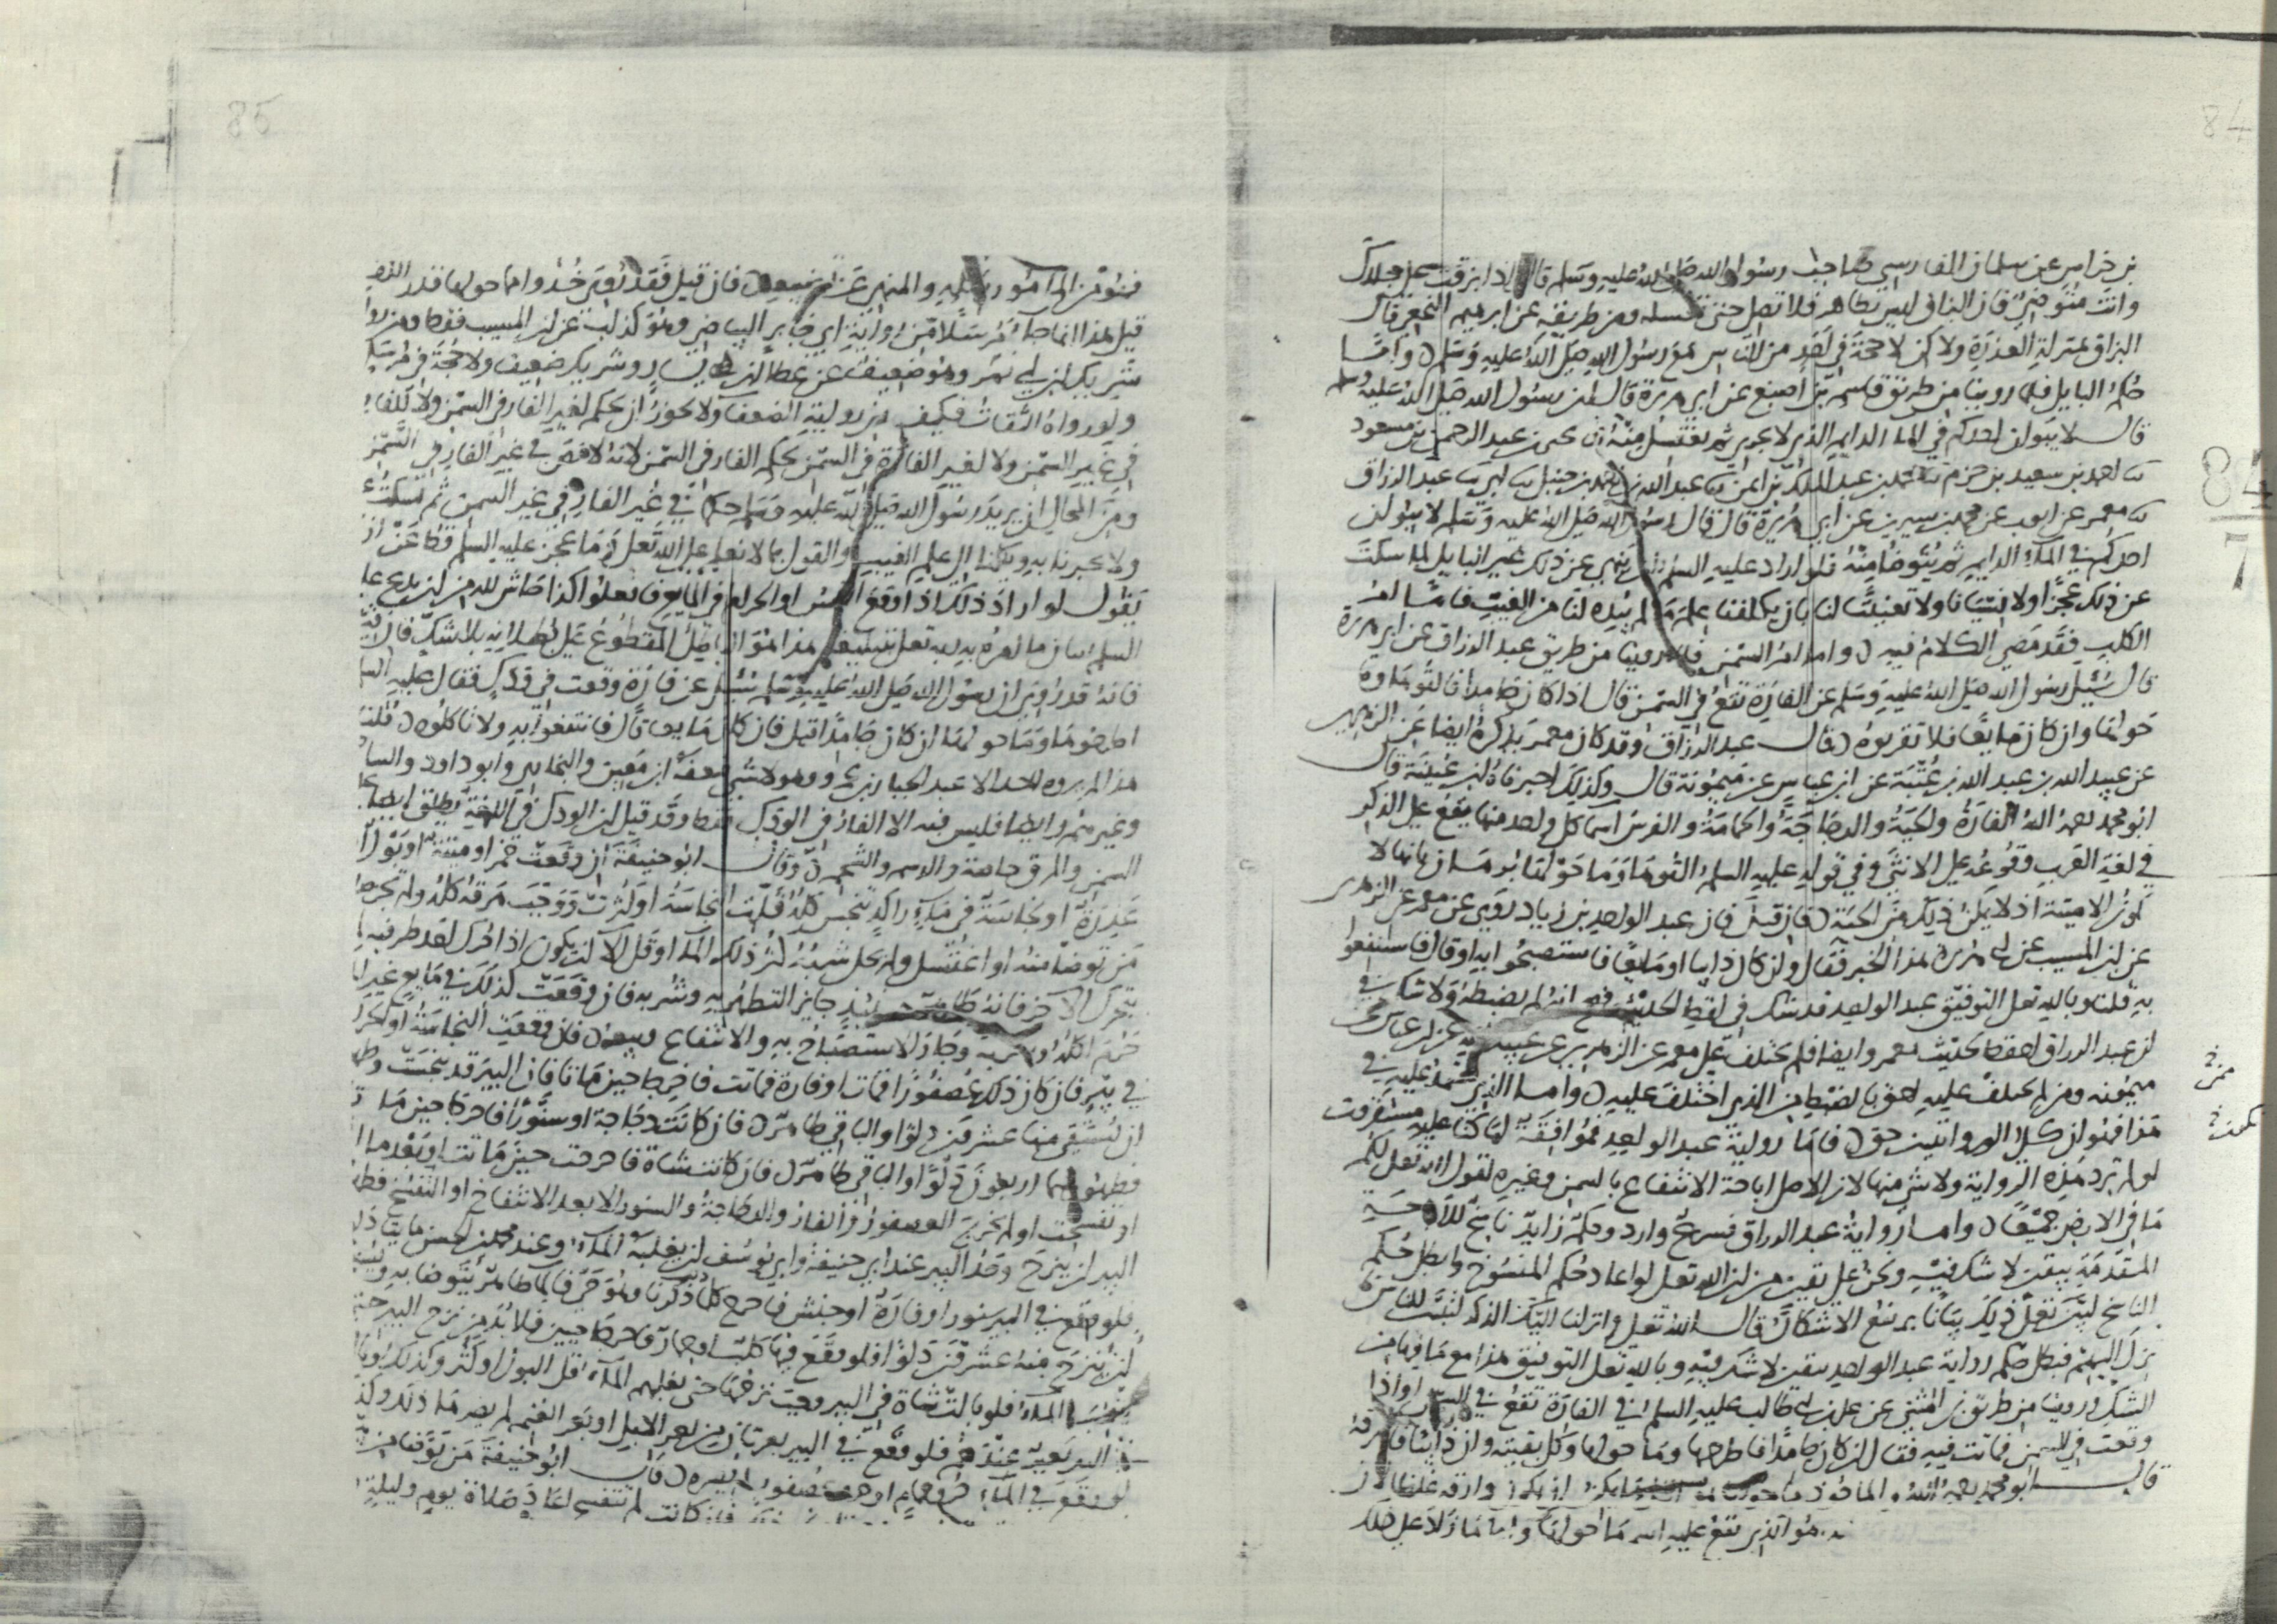 84
بن حراس عن سلمان الفارسي صاحب رسول الله صلى الله عليه وسلم قال اذا بزقت على جلدك
وانت متوضئ فان البزاق ليس بطاهر فلا تصل حتى تغسله ومن طريقه عن ابرهيم النخعي قال
البزاق بمنزلة العذرة ولاكن لا حجة في احد من الناس مع رسول الله صلى الله عليه وسلم واما
حكم البايل فلما روينا من طريق قاسم بن اصبغ عن ابي هريرة قال ان رسول الله صلى الله عليه وسلم
قال لا يبولن احدكم في الماء الدايم الذي لا يجري ثم يغتسل منه عبد الرحمن بن مسعود
احمد بن سعيد بن حزم محمد بن عبد الملك بن ايمن عبد الله بن احمد بن حنبل ابي عبد الرزاق
معمر عن ايوب عن محمد بن سيرين عن ابي هريرة قال قال رسول الله صلى الله عليه وسلم لا يبولن
احدكم في الماء الدايم ثم يتوضا منه فلو اراد عليه السلم ان ينهى عن ذلك غير البايل لما سكت
عن ذلك عجزا ولا نسيانا ولا تعنيتا لنا بان يكلفنا علم ما لم يبده لنا من الغيب فاما امر
الكلب فقد مضى الكلام فيه واما امر السمن فلما روينا من طريق عبد الرزاق عن ابي هريرة
قال سئل رسول الله صلى الله عليه وسلم عن الفارة تقع في السمن قال اذا كان جامدا فالقوها وما
حولها وان كان مايعا فلا تقربوه قال عبد الرزاق وقد كان معمر يذكره ايضا عن الزهري
عن عبيد الله بن عبد الله بن عتبة عن ابن عباس عن ميمونة قال وكذلك اخبرناه ابن عيينة قال
ابو محمد رحمه الله الفارة والحية والدجاجة والحمامة والفرس اسما كل واحد منها يقع على الذكر
في لغة العرب وقوعه على الانثى وفي قوله عليه السلم القوها وما حولها برهان بانها لا
تكون الا ميتة اذ لا يمكن ذلك من الحية فان قيل فان عبد الواحد بن زياد روى عن معمر عن الزهري
عن ابن المسيب عن ابي هريرة هذا الخبر فقال وان كان ذايبا او مايعا فاستصبحوا به او قال فاستنفعوا
به قلنا وبالله تعلى التوفيق عبد الواحد قد شك في لفظ الحديث فصح انه لم يضبطه ولا شك في
ان عبد الرزاق احفظ لحديث معمر وايضا فلم يختلف على معمر عن الزهري عن عبيد الله عن ابن عباس عن
ميمونه ومن لم يختلف عليه احق بالضبط من الذي اختلف عليه واما الذي نعتمد عليه في
هذا فهو ان كلا الروايتين حق فاما رواية عبد الواحد فموافقة لما كنا عليه
لو لم ترد هذه الرواية ولا شي منها لان الاصل اباحة الانتفاع بالسمن وغيره لقول الله تعلى لكم
ما في الارض جميعا واما رواية عبد الرزاق فشرع وارد وحكم زايد ناسخ للاباحة
المتقدمة بيقين لا شك فيه ونحن على يقين من ان الله تعلى لو اعاد حكم المنسوخ وابطل حكم
الناسخ لبين تعلى ذلك بيانا يرتفع به الاشكال قال الله تعلى وانزلنا اليك الذكر لتبين للناس ما
نزل اليهم فبطل حكم رواية عبد الواحد بيقين لا شك فيه وبالله تعلى التوفيق هذا مع ما فيها من
الشك وروينا من طريق ابن المثنى عن علي بن ابي طالب عليه السلم في الفارة تقع في السمن او اذا
وقعت في السمن فماتت فيه فقال ان كان جامدا فاطرحها وما حولها وكل بقيته وان ذايبا فاهرقه
قال ابو محمد رحمه الله والماخوذ مما حولها يكون وارقه غلظا لان
هو الذي يقع عليه اسم ما حولها واما ما زاد على ذلك
84
7
85
فهو من المامور باكله والمنهي عن تضييعه فان قيل فقد روي خذوا مما حولها قدر الكف
قيل هذا انما جاء مرسلا من رواية ابي جابر البياضي وهو كذاب عن ابن المسيب فقط ومن رواية
شريك ابن ابي نمر وهو ضعيف عن عطا ابن يسار وشريك ضعيف ولا حجة في مرسل
ولو رواه الثقات فكيف من رواية الضعفا ولا يجوز ان يحكم لغير الفار في السمن ولا للفار
في غير السمن ولا لغير الفارة في السمن بحكم الفار في السمن لانه لا نص في غير الفار في السمن
ومن المحال ان يريد رسول الله صلى الله عليه وسلم حكما في غير الفار في غير السمن ثم يسكت
ولا يخبرنا به ويكلنا الى علم الغيب والقول بما لا نعلم على الله تعلى وما عجز عليه السلم قط عن ان
يقول لو اراد ذلك اذا وقع النجس او الحرام في المايع فافعلوا كذا حاش لله من ان يدع عليه
السلم بيان ما امره به ربه تعلى بتبليغه هذا هو الباطل المقطوع على بطلانه بلا شك فان قيل
فانه قد روي ان رسول الله صلى الله عليه وسلم سئل عن فارة وقعت في ودك فقال عليه السلم
اطرحوها وما حولها ان كان جامدا قيل فان كان مايعا قال فانتفعوا به ولا تاكلوه قلنا
هذا لم يروه احد الا عبد الجبار بن عمر وهو لا شي ضعفه ابن معين والبخاري وابو داود والساجي
وغيرهم وايضا فليس فيه الا الفار في الودك فقط وقد قيل ان الودك في اللغة يطلق ايضا على
السمن والمرق خاصة والدسم والشحم وقال ابو حنيفة ان وقعت خمر او ميتة او بول او
عذرة او نجاسة في ماء راكد تنجس كله قلت النجاسة او كثرت ووجب هرقه كله ولم تجز صلاة
من توضا منه او اغتسل ولم يحل شربه كثر ذلك الماء او قل الا ان يكون اذا حرك احد طرفيه لم
يتحرك الاخر فانه طاهر حينئذ جايز التطهر به وشربه فان وقعت كذلك في مايع غير الماء
حرم اكله وشربه وجاز الاستصباح به والانتفاع وبيعه فان وقعت النجاسة او الحرام
في بير فان كان ذلك عصفورا فمات او فارة فماتت فاخرجا حين ماتا فان البير قد تنجست وطهورها
ان يستقى منها عشرون دلوا والباقي طاهر فان كانت دجاجة او سنورا فاخرجا حين ماتا
فطهورها اربعون دلوا والباقي طاهر فان كانت شاة فاخرجت حين ماتت او بعد ما
او تفسخت او لم تخرج العصفور والفار والدجاجة والسنور الا بعد الانتفاخ او التفسخ فطهور
البير ان ينزح وحد البير عند ابي حنيفة وابي يوسف ان يغلبه الماء وعند محمد بن الحسن مايتا دلو
فلو وقع في البير سنور او فارة او حنش فاخرج كل ما ذكرنا وهو حي فالما طاهر يتوضا به ويستحب
ان ينزح منه عشرون دلوا فلو وقع فيها كلب او حمار فاخرجا حيين فلا بد من نزح البير حتى
يغلبهم الماء فلو بالت شاة في البير وجب نزحها حتى يغلبهم الماء قل البول او كثر وكذلك لو بال
في البير بعير عندهم فلو وقع في البير بعرتان من بعر الابل او بعر الغنم لم يضرها ذلك وكذلك
لو وقع في الماء خرو حمام او عصفور لم يضره قال ابو حنيفة من توضا من بير
كانت لم تنفسخ اعاد صلاة يوم وليلة